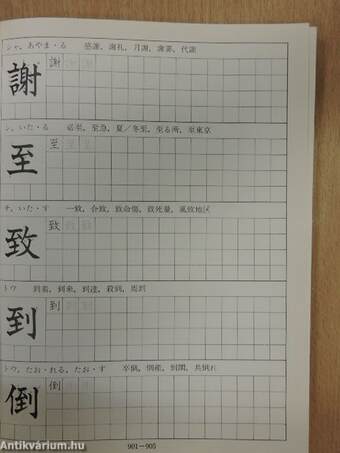 シャ, あやま・る 感謝, 謝礼, 月謝, 謝罪, 代謝
謝 謝
シ, いた・る 必至, 至急, 夏/冬至, 至る所, 至東京
至 至
チ, いた・す 一致, 合致, 致命傷, 致死量, 風致地区
致 致
トウ 到着, 到来, 到達, 殺到, 周到
到 到
トウ, たお・れる, たお・す 卒倒, 倒産, 共倒れ
倒 倒
901−905
Antikvárium.hu